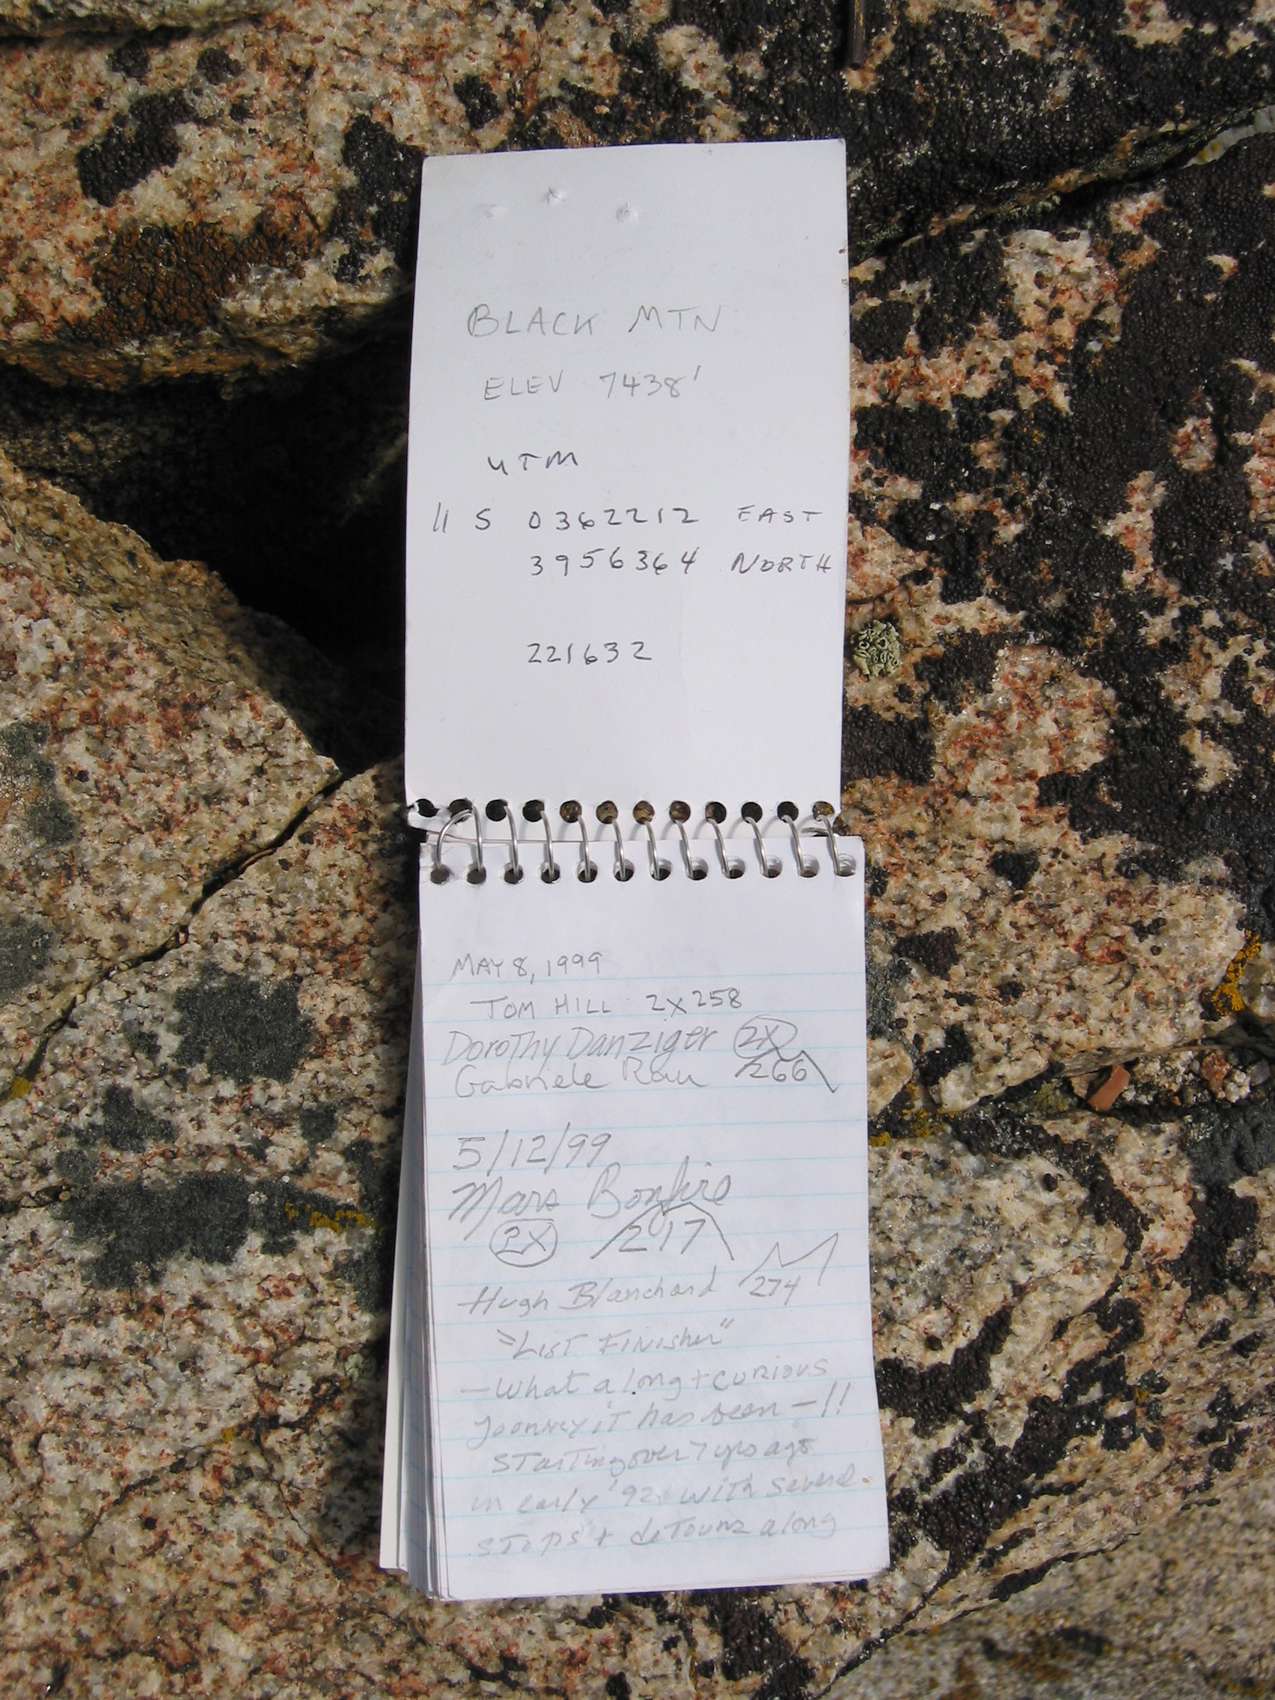 BLACK MTN
ELEV 7438'
UTM
11 S 0362212 EAST
3956364 NORTH
221632
MAY 8, 1999
TOM HILL 2X258
Dorothy Danziger 2X
Gabriele Rau 266
5/12/99
Mars Bonfire
2X 217
Hugh Blanchard 274
"List Finisher"
- What a long + curious
Joonrey it has been - !!
Starting over 7 yrs ago
in early '92. with several
stops + detours along